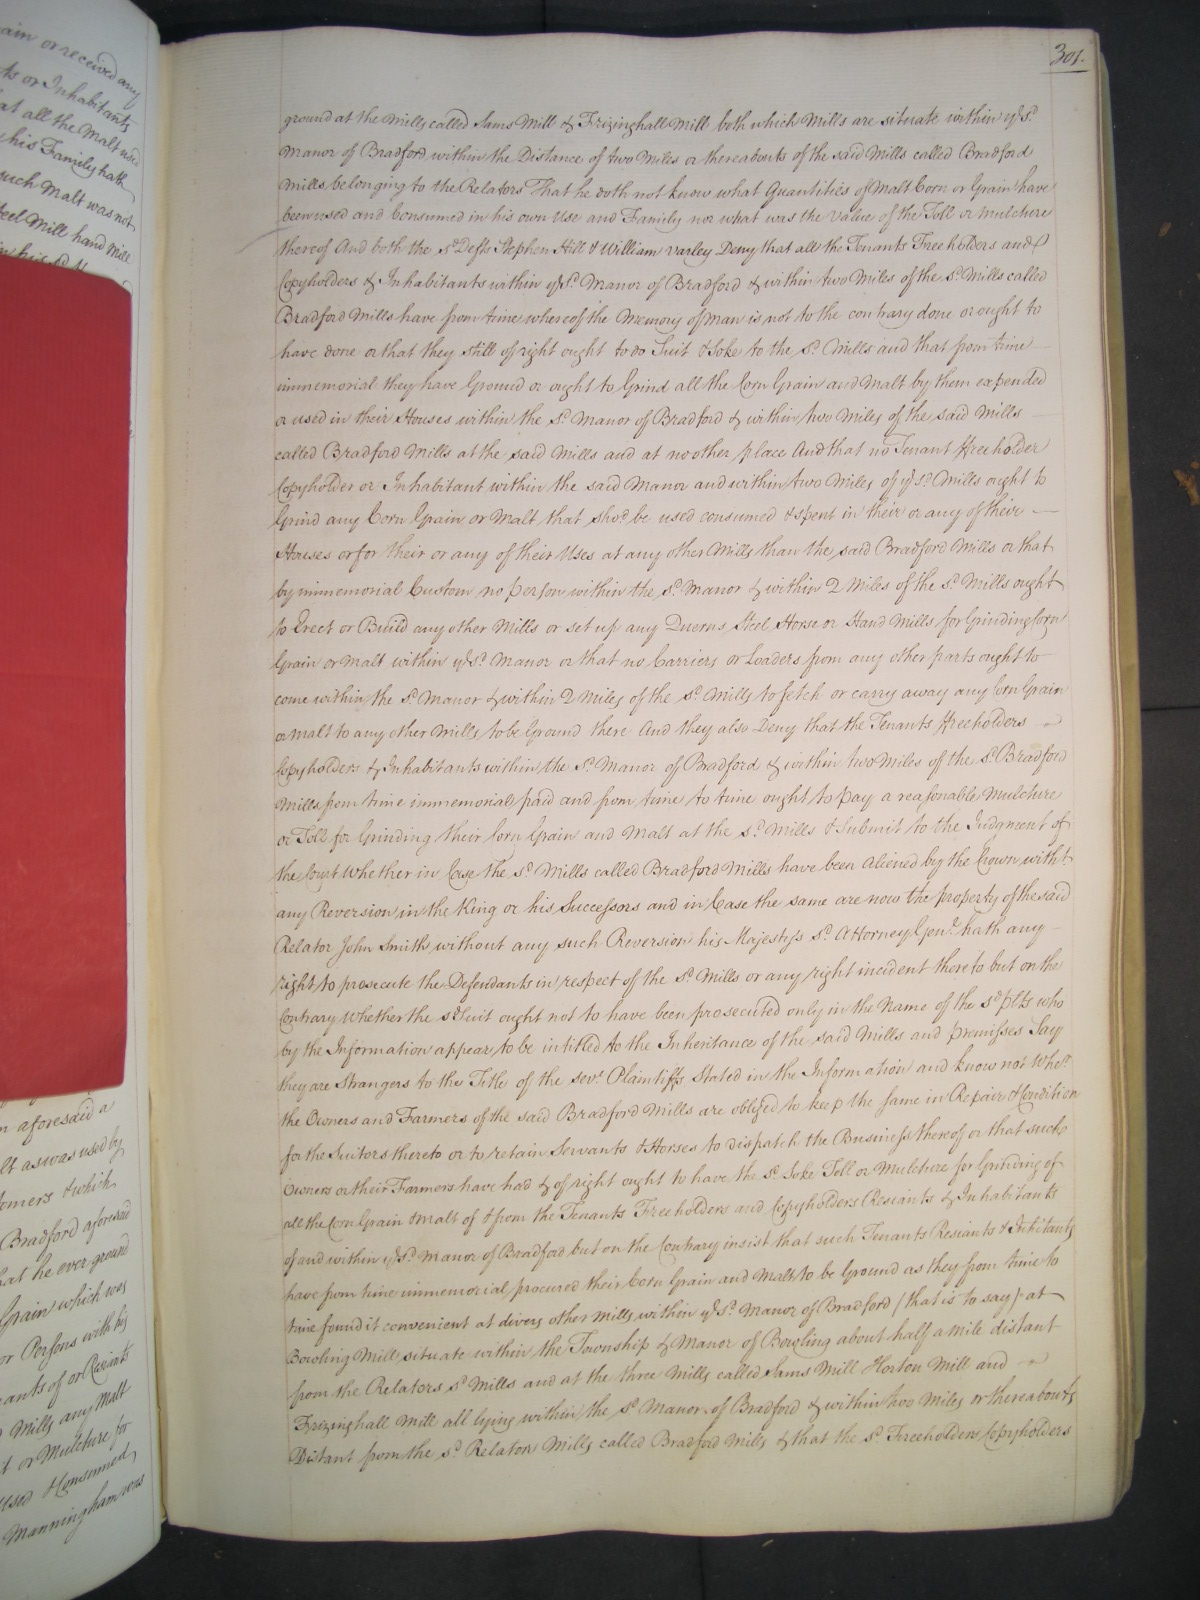 ain or received any
ts or Inhabitants
at all the Malt used
his Family hath
such Malt was not
teel Mill hand Mill
n aforesaid a
lt as was used by
tomers & which
Bradford aforesaid
hat he ever ground
Grain which was
or Persons with his
ants of or Resiants
Mills any Malt
t or Mulcture for
used & Consumed
Manningham was
301.
ground at the Mills called Sams Mill & Frizinghall Mill both which Mills are situate within ye sd.
Manor of Bradford within the Distance of two Miles or thereabouts of the said Mills called Bradford
Mills belonging to the Relators That he doth not know what Quantities of Malt Corn or Grain have
been used and Consumed in his own Use and Family nor what was the Value of the Toll or Mulcture
thereof And both the sd Defts Stephen Hill & William Varley Deny that all the Tenants Freeholders and
Copyholders & Inhabitants within ye sd. Manor of Bradford & within two Miles of the sd. Mills called
Bradford Mills have from time whereof the Memory of Man is not to the contrary done or ought to
have done or that they still of right ought to do Suit & Soke to the sd. Mills and that from time
immemorial they have Ground or ought to Grind all the Corn Grain and Malt by them expended
or used in their Houses within the sd. Manor of Bradford & within two Miles of the said Mills
called Bradford Mills at the said Mills and at no other place And that no Tenant Freeholder
Copyholder or Inhabitant within the said Manor and within two Miles of ye sd. Mills ought to
Grind any Corn Grain or Malt that shod. be used consumed & spent in their or any of their
Houses or for their or any of their Uses at any other Mills than the said Bradford Mills or that
by immemorial Custom no person within the sd. Manor & within 2 Miles of the sd. Mills ought
to Erect or Build any other Mills or set up any Querns Steel Horse or Hand Mills for Grinding Corn
Grain or Malt within ye sd. Manor or that no Carriers or Loaders from any other parts ought to
come within the sd. Manor & within 2 Miles of the sd. Mills to fetch or carry away any Corn Grain
or Malt to any other Mills to be Ground there And they also Deny that the Tenants Freeholders
Copyholders & Inhabitants within the sd. Manor of Bradford & within two Miles of the sd. Bradford
Mills from time immemorial paid and from time to time ought to pay a reasonable Mulcture
or Toll for Grinding their Corn Grain and Malt at the sd. Mills & Submit to the Judgment of
the Court whether in Case the sd. Mills called Bradford Mills have been aliened by the Crown witht.
any Reversion in the King or his Successors and in Case the same are now the property of the said
Relator John Smith without any such Reversion his Majestys sd. Attorney Genl. hath any
right to prosecute the Defendants in respect of the sd. Mills or any right incident thereto but on the
Contrary Whether the sd Suit ought not to have been prosecuted only in the Name of the sd plts who
by the Information appear to be intitled to the Inheritance of the said Mills and premisses Say
they are Strangers to the Title of the sevl. Plaintiffs Stated in the Information and know not Wher.
the Owners and Farmers of the said Bradford Mills are obliged to keep the same in Repair & Condition
for the Suitors thereto or to retain Servants & Horses to dispatch the Business thereof or that such
Owners or their Farmers have had & of right ought to have the sd. Soke Toll or Mulcture for Grinding of
all the Corn Grain & Malt of & from the Tenants Freeholders and Copyholders Resiants & Inhabitants
of and within ye sd. Manor of Bradford but on the Contrary insist that such Tenants Resiants & Inhitants
have from time immemorial procured their Corn Grain and Malt to be Ground as they from time to
time found it convenient at divers other Mills within ye sd. Manor of Bradford (that is to say) at
Bowling Mill situate within the Township & Manor of Bowling about half a mile distant
from the Relators sd. Mills and at the three Mills called Sams Mill Horton Mill and
Frizinghall Mill all lying within the sd. Manor of Bradford & within two Miles or thereabouts
Distant from the sd. Relators Mills called Bradford Mills & that the sd. Freeholders Copyholders